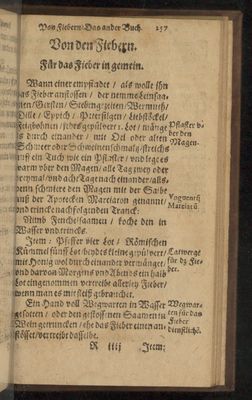 Von Fiebern/Das ander Buch. 237
Von den Fiebern.
Für das Fieber in gemein.
Wann einer empfindet / als wolle ihn
das Fieber anstossen / der nemme Leinsaa-
men / Gersten / Siebengezeiten / Wermuth /
Dille / Eppich / Petersilgen / Liebstöckel /
Feigbohnen / jedes gepülvert 1. Lot / menge
es durch einander / mit Oel oder alten
Schmeer oder Schweinenschmaltz / streichs
auff ein Tuch wie ein Pflaster / und leg es
warm uber den Magen / alle Tag zwey oder
dreymal / und acht Tage nach einander / als-
denn schmiere den Magen mit der Salbe
auß der Apotecken Martiaton genannt /
und trincke nach folgenden Tranck:
Nimb Fenchelsaamen / koche den in
Wasser und trincks.
Item: Pfeffer vier Lot / Römischen
Kümmel fünff Lot beydes klein gepülvert /
mit Honig wol durch einander vermänget /
und darvon Morgens und Abends ein halb
Lot eingenommen vertreibt allerley Fieber /
wenn man es mit fleiß gebrauchet.
Ein Hand voll Wegwarten in Wasser
gesotten / oder den gestossenen Saamen in
Wein getruncken / ehe das Fieber einen an-
stösset / vertreibt dasselbe.
R iiij Item:
Pflaster ü-
ber den
Magen.
Unguentū
Martiatū.
Latwerge
für dz Fie-
ber.
Wegwar-
ten für das
Fieber
dienstlich.